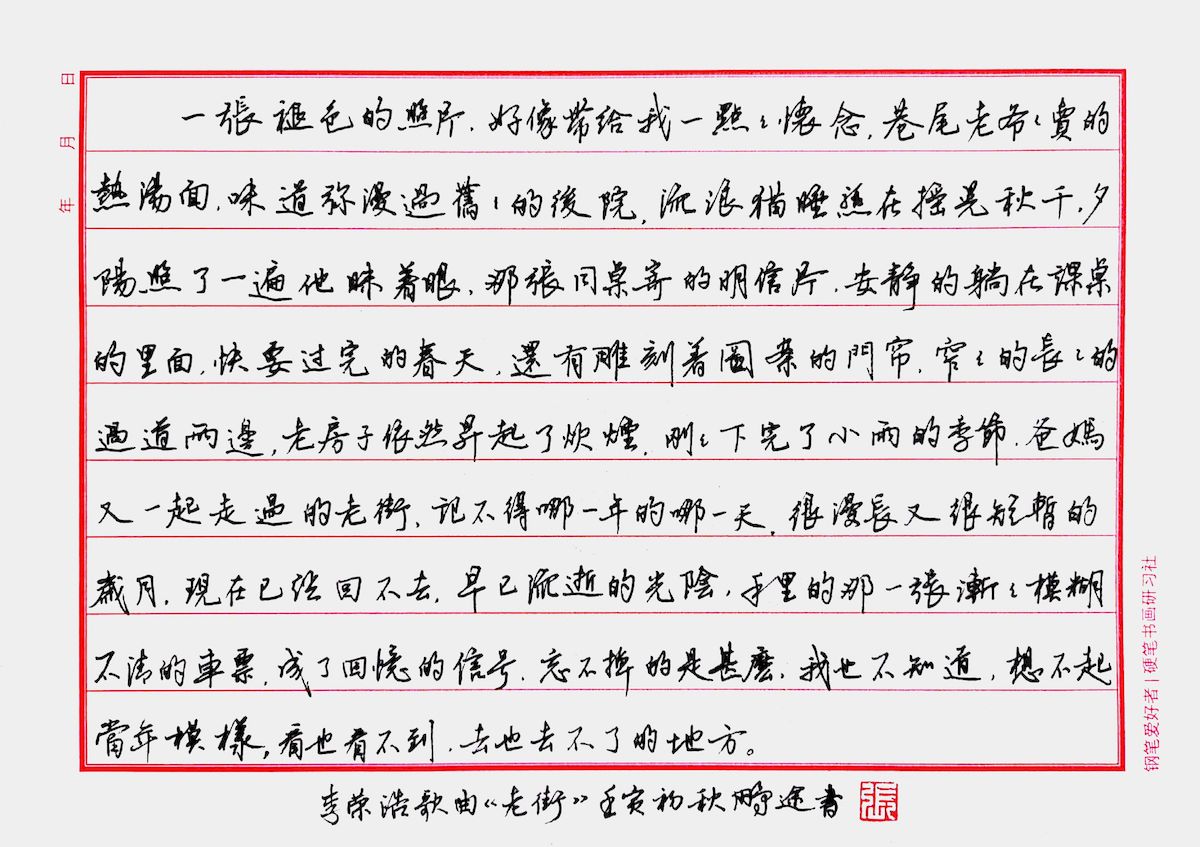 年 月 日
一張褪色的照片.好像带给我一點〻懷念.巷尾老爷〻賣的
熱湯面.味道弥漫過舊〻的後院,流浪猫睡熟在摇晃秋千.夕
陽照了一遍他眯着眼.那張同桌寄的明信片.安静的躺在課桌
的里面.快要过完的春天,還有雕刻着圖案的門帘.窄〻的長〻的
過道两邊,老房子依然昇起了炊煙.刚〻下完了小雨的季節.爸媽
又一起走過的老街.記不得哪一年的哪一天.很漫長又很短暫的
歲月.現在已經回不去.早已流逝的光陰,手里的那一張漸〻模糊
不清的車票.成了回憶的信号.忘不掉的是甚麽.我也不知道,想不起
當年模樣,看也看不到.去也去不了的地方。
李荣浩歌曲《老街》壬寅初秋鹏途書
張
钢笔爱好者|硬笔书画研习社